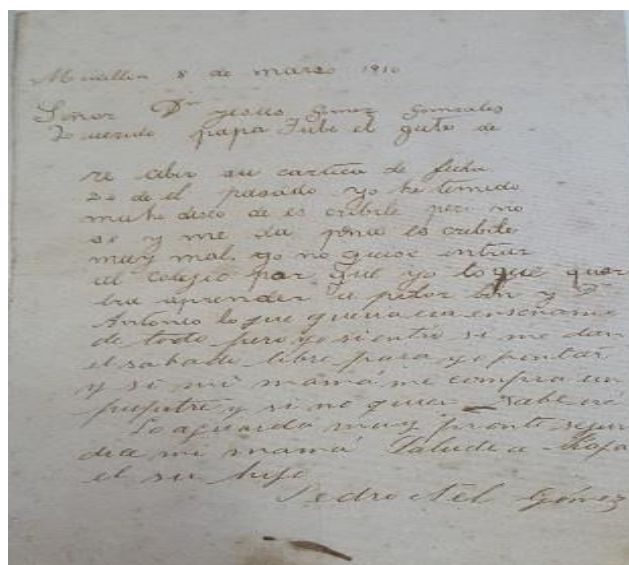 Medellin 8 de marzo 1910
Señor Dn Jesus Gomez Gonzales
querido papa Tube el guto de
re cibir su cartica de fecha
de el pasado yo he tenido
mucho deseo de es cribile pero no
se y me da pena es cribile
muy mal, yo no quise entrar
al colejio por que yo lo que quer
era aprender a pintor y Dn
Antonio lo que queria era enseñame
de todo pero yo si entro si me dan
el sabado libre para yo pintar
y si mi mamá me compra un
puputre y si no quier
Lo aguardo muy pronto segun
dice mi mamá Salude a
el su hijo
Pedro Nel Gómez